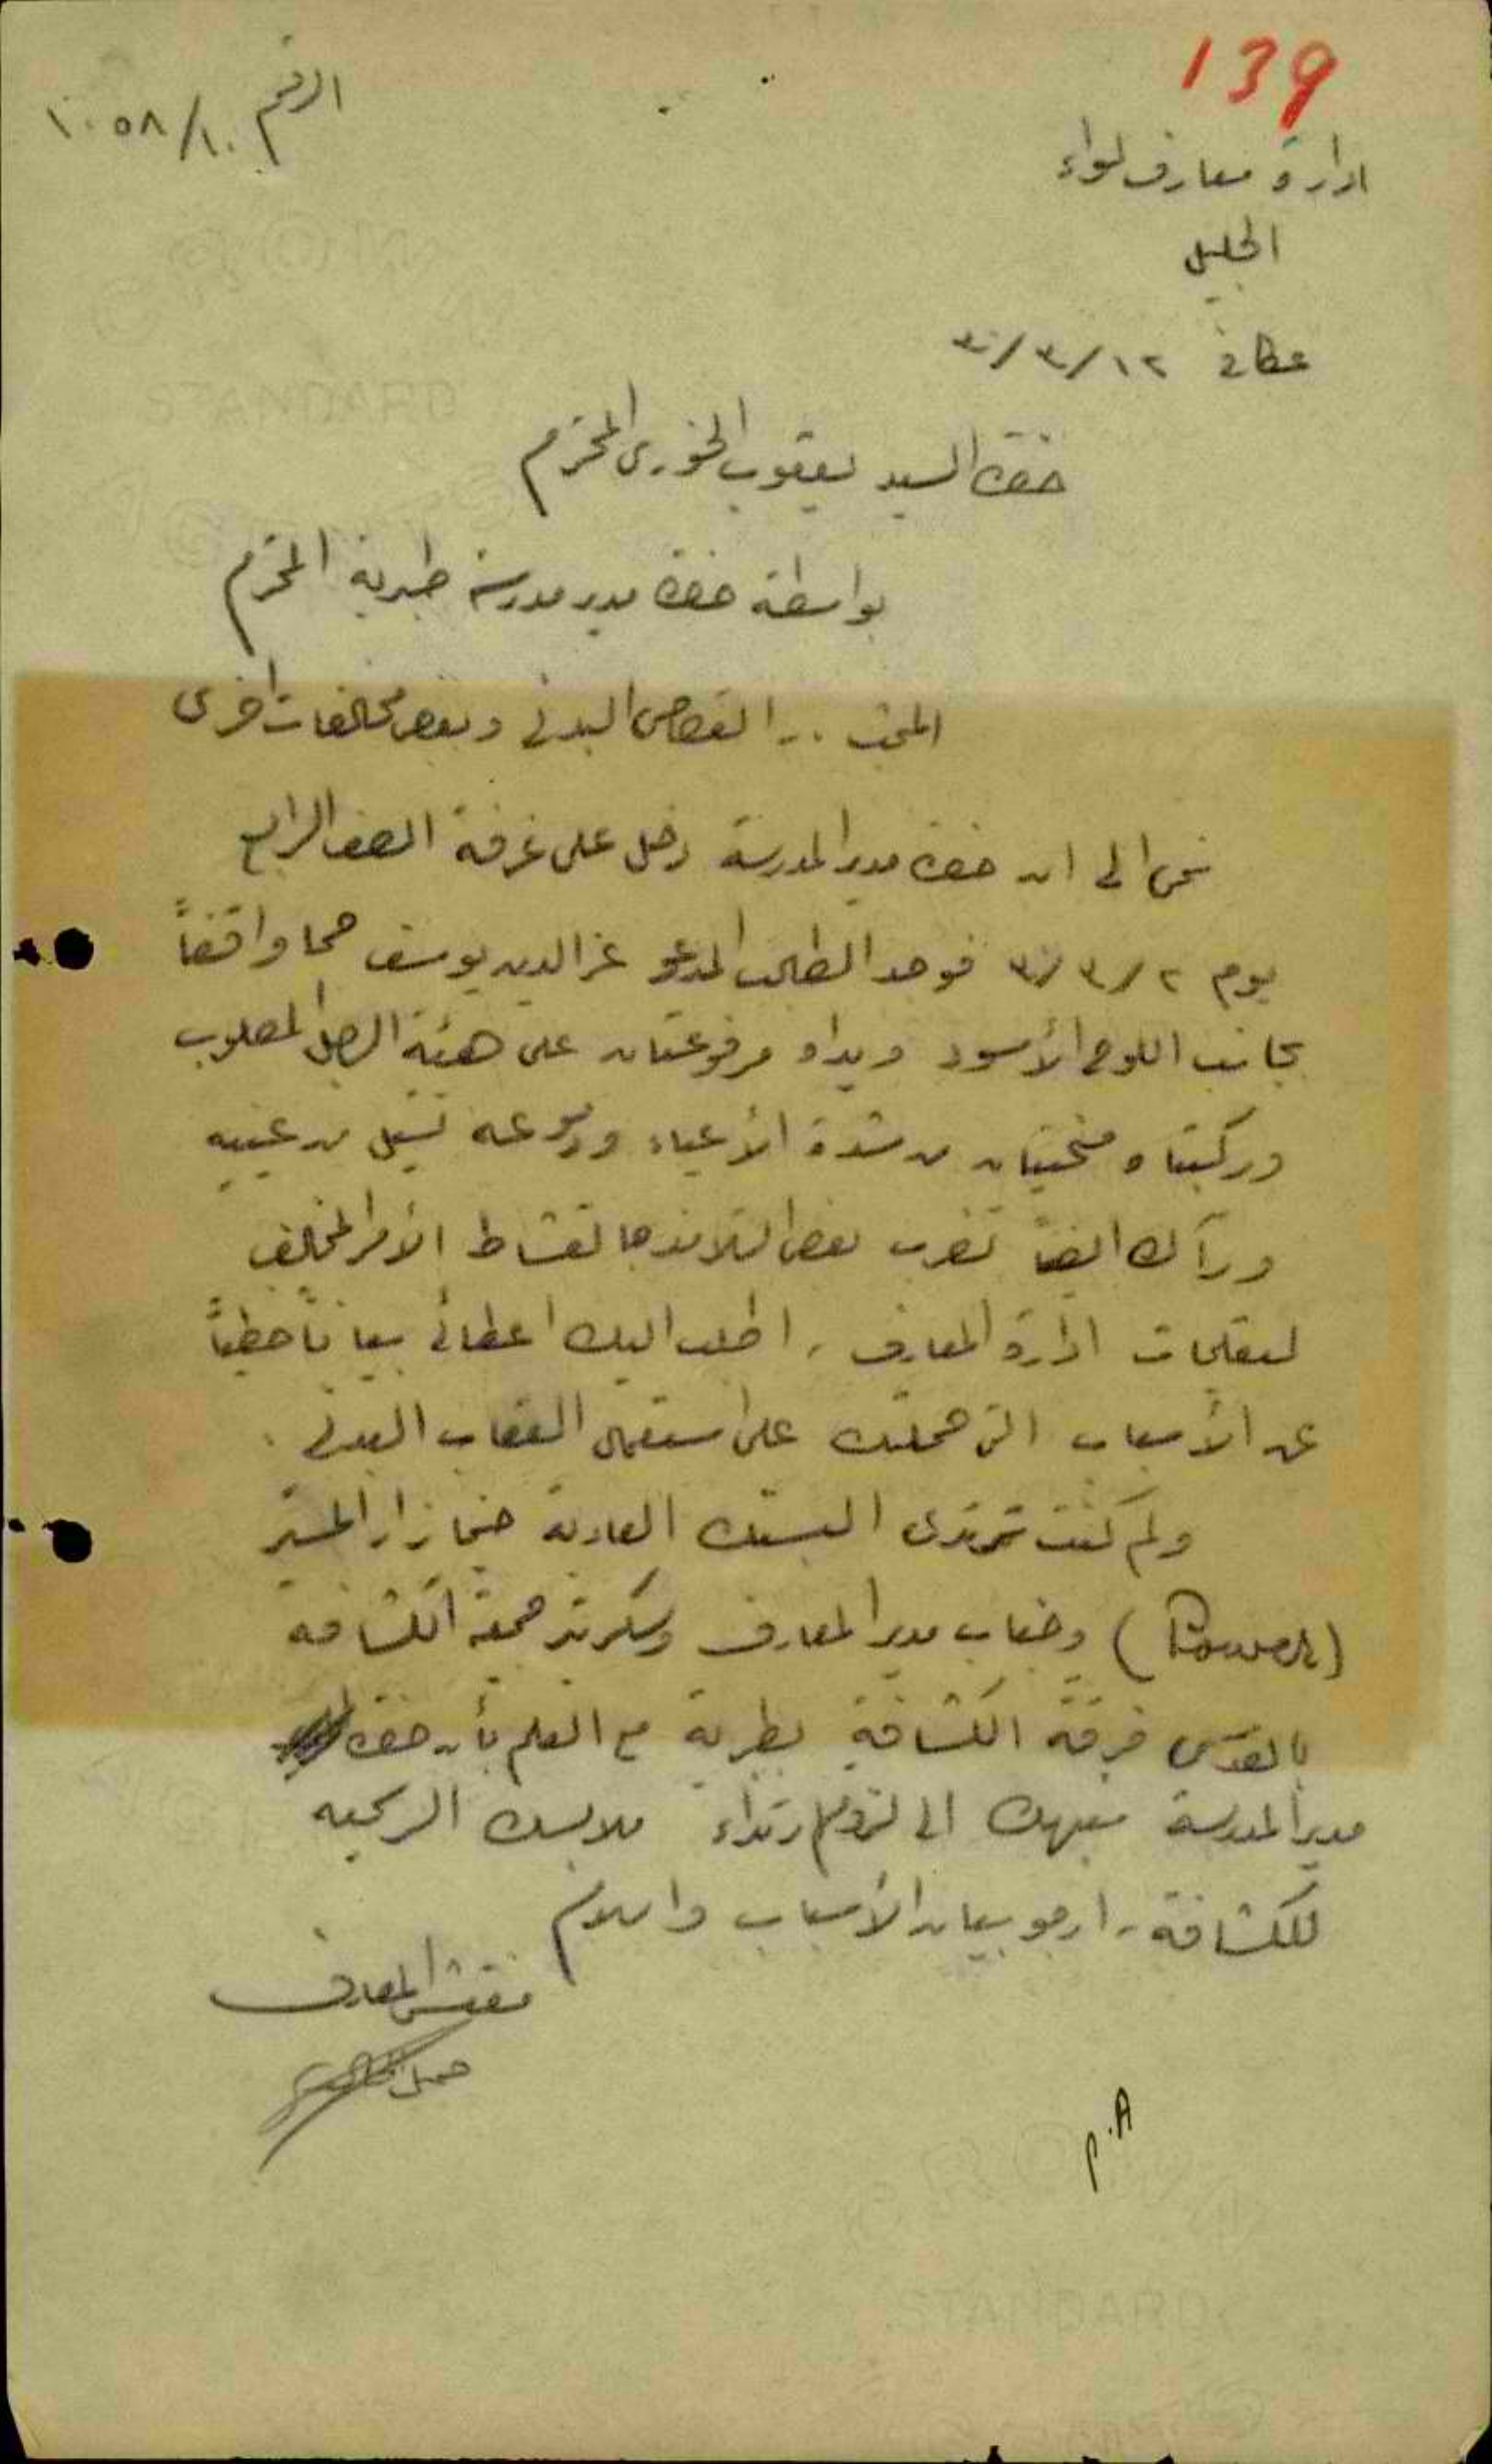 139
الرقم ١٠٥٨/١٠
ادارة معارف لواء
الجليل
عكا في ١٢/٣/٣٠
حضرة السيد يعقوب الخوري المحترم
بواسطة حضرة مدير مدرسة طبرية المحترم
المبحث :- القصاص البدني وبعض مخالفات اخرى
نمى الي ان حضرة مدير المدرسة دخل على غرفة الصف الرابع
يوم ٢/٣/٣٠ فوجد الطالب المدعو عز الدين يوسف واقفاً
بجانب اللوح الأسود ويداه مرفوعتان على هيئة الرجل المصلوب
وركبتاه منحنيتان من شدة الأعياء ودموعه تسيل من عينيه
ورآك ايضاً تضرب بعض التلاميذ بالقشاط الأمر المخالف
لتعليمات ادارة المعارف . اطلب اليك اعطائي بياناً خطياً
عن الأسباب التي حملتك على استعمال العقاب البدني .
ولم كنت ترتدي البستك العادية حينما زار المستر
(Power) وجناب مدير المعارف وسكرتير جمعية الكشافة
بالقدس فرقة الكشافة بطبرية مع العلم بأن حضرة
مدير المدرسة نبهك الى لزوم ارتداء ملابسك الرسمية
للكشافة . ارجو بيان الأسباب والسلام
مفتش المعارف
P.A